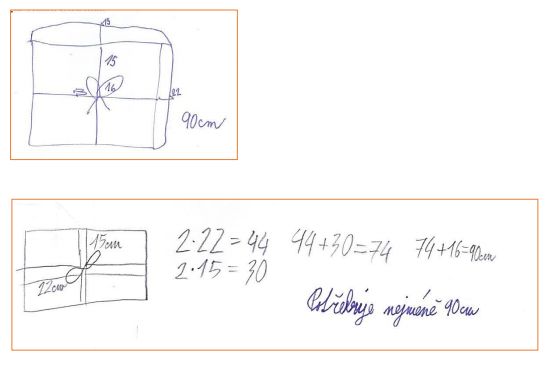 15
15
16
22
90cm
15cm
22cm
2·22=44
2·15=30
44+30=74
74+16=90cm
Potřebuje nejméně 90cm